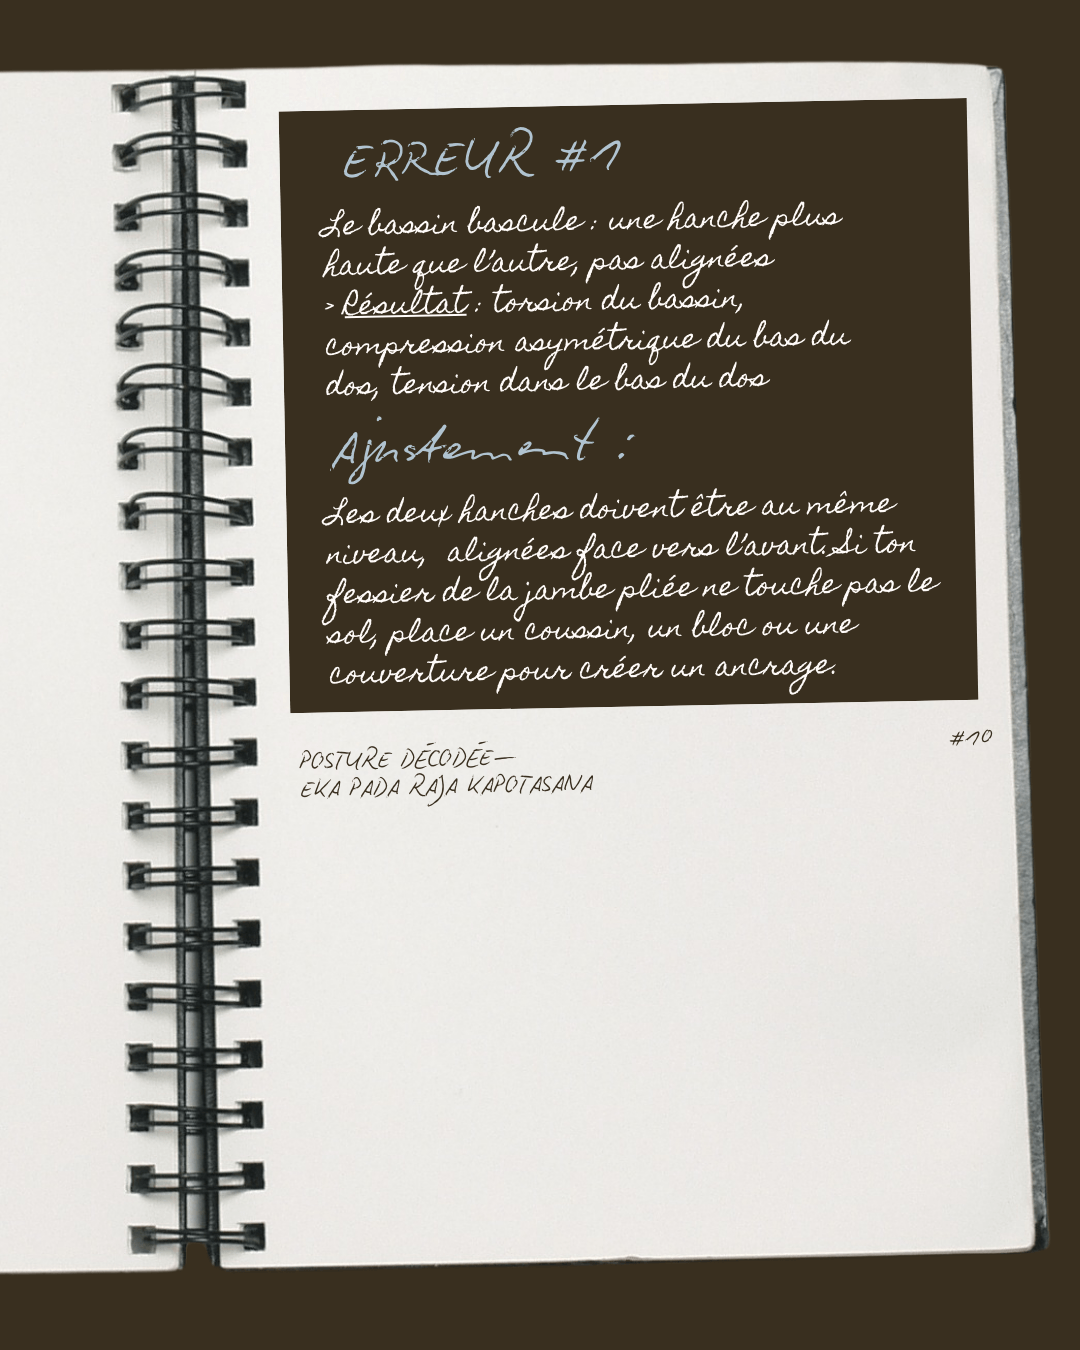 ERREUR #1
Le bassin bascule : une hanche plus
haute que l'autre, pas alignées
> Résultat : torsion du bassin,
compression asymétrique du bas du
dos, tension dans le bas du dos
Ajustement :
Les deux hanches doivent être au même
niveau, alignées face vers l'avant. Si ton
fessier de la jambe pliée ne touche pas le
sol, place un coussin, un bloc ou une
couverture pour créer un ancrage.
#10
POSTURE DÉCODÉE—
EKA PADA RAJA KAPOTASANA